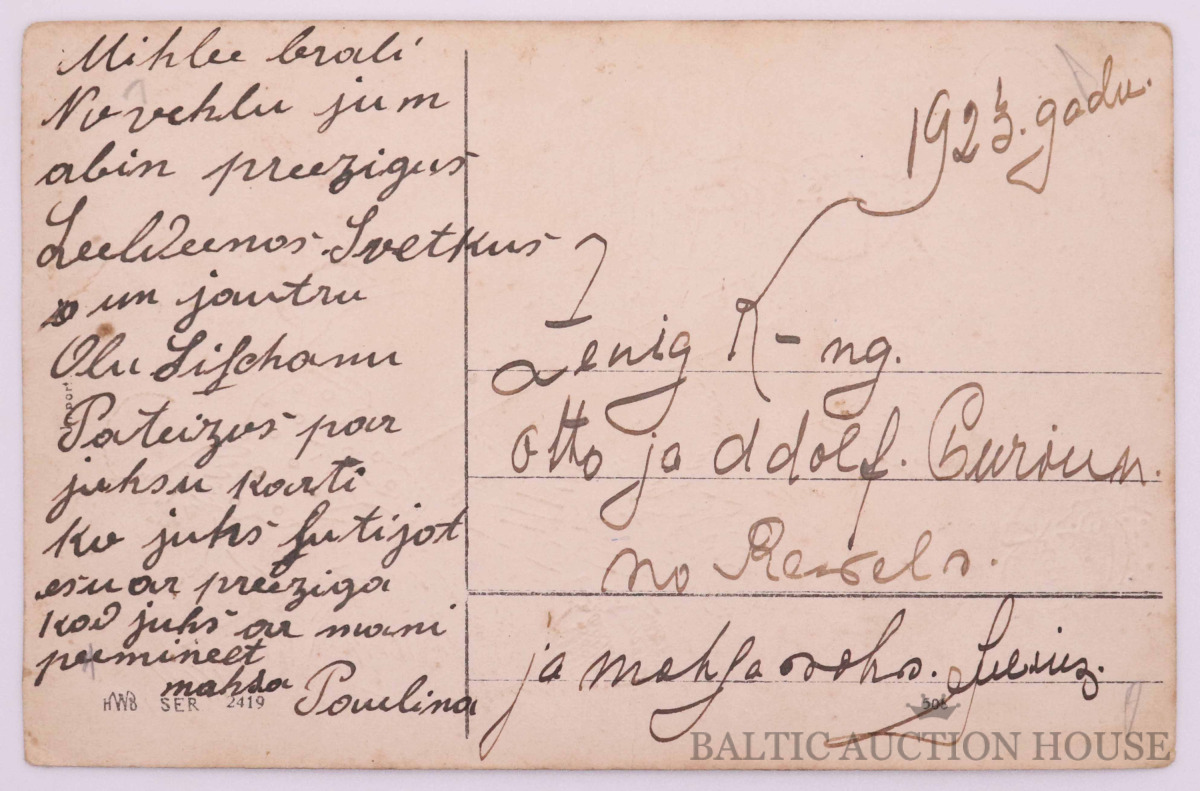 Mihlee brali
Novehlu jum
abin preezigus
Leeldeenos Svetkus
un jautru
Olu Sischanu
Pateizos par
juhsu karti
ko juhs sutijot
esu ar preeziga
kad juhs ar mani
peemineet
mahsa
Paulina
import
HWB SER 2419
1923. gadu.
Zenig K-ng.
Otto ja Adolf.
no Rewels.
ja
508
BALTIC AUCTION HOUSE